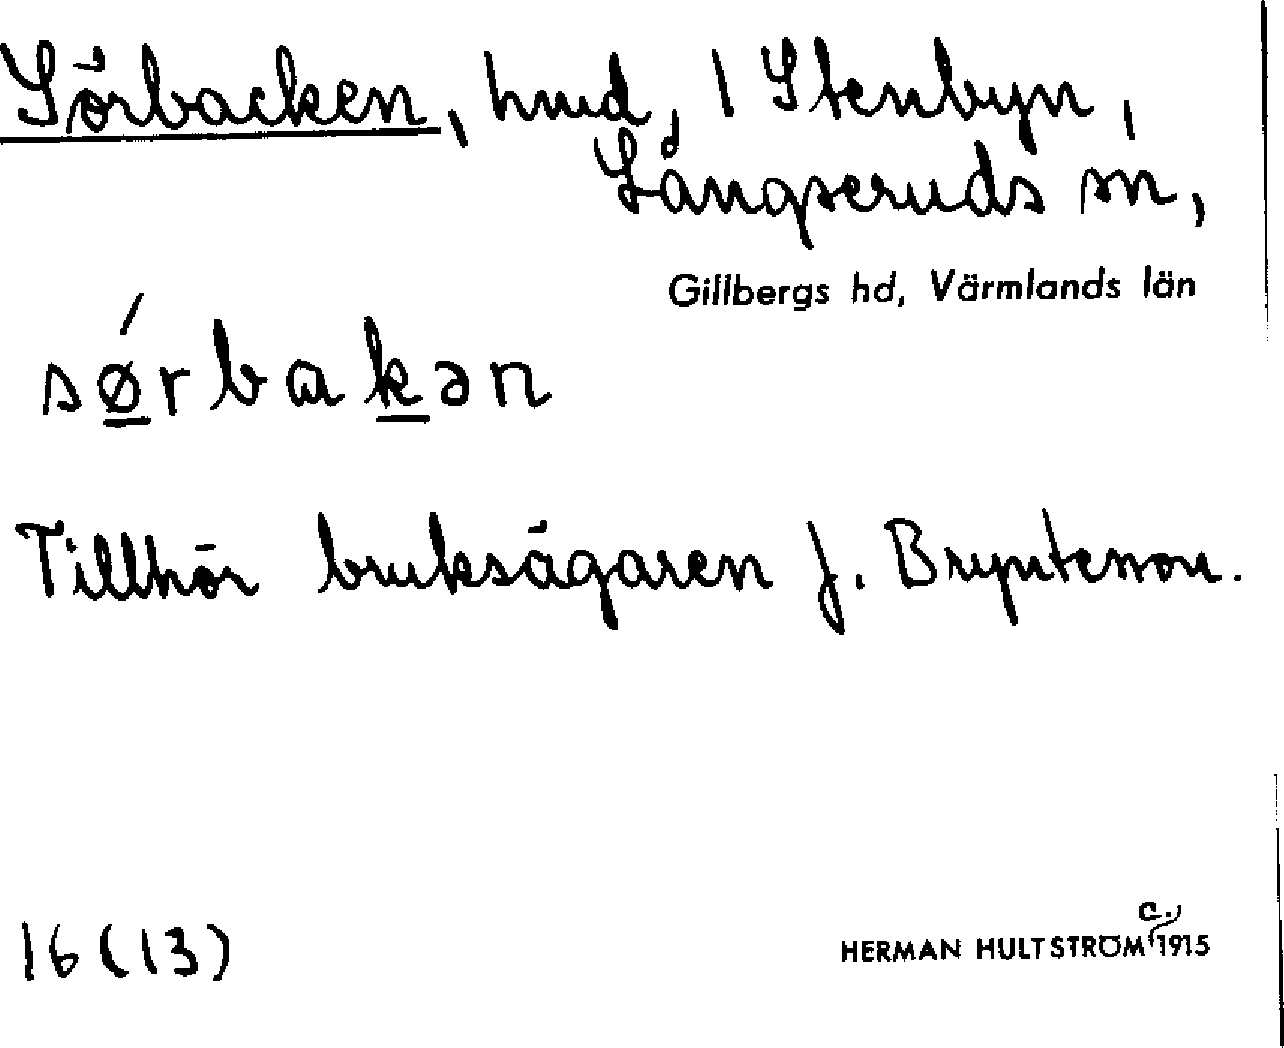 Sörbacken, hmd, 1 Stenbyn,
Långseruds sn,
Gillbergs hd, Värmlands län
sǿrbakən
Tillhör bruksägaren J. Bryntesson.
16 (13)
c.,
HERMAN HULTSTRÖM 1915